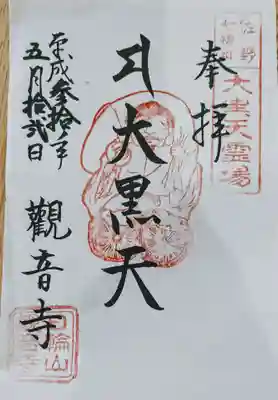 奉拝
大黒天霊場
大黒天
平成参拾年
五月拾弐日
觀音寺